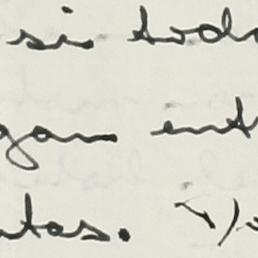 si tod
gan ent
tas. Yo